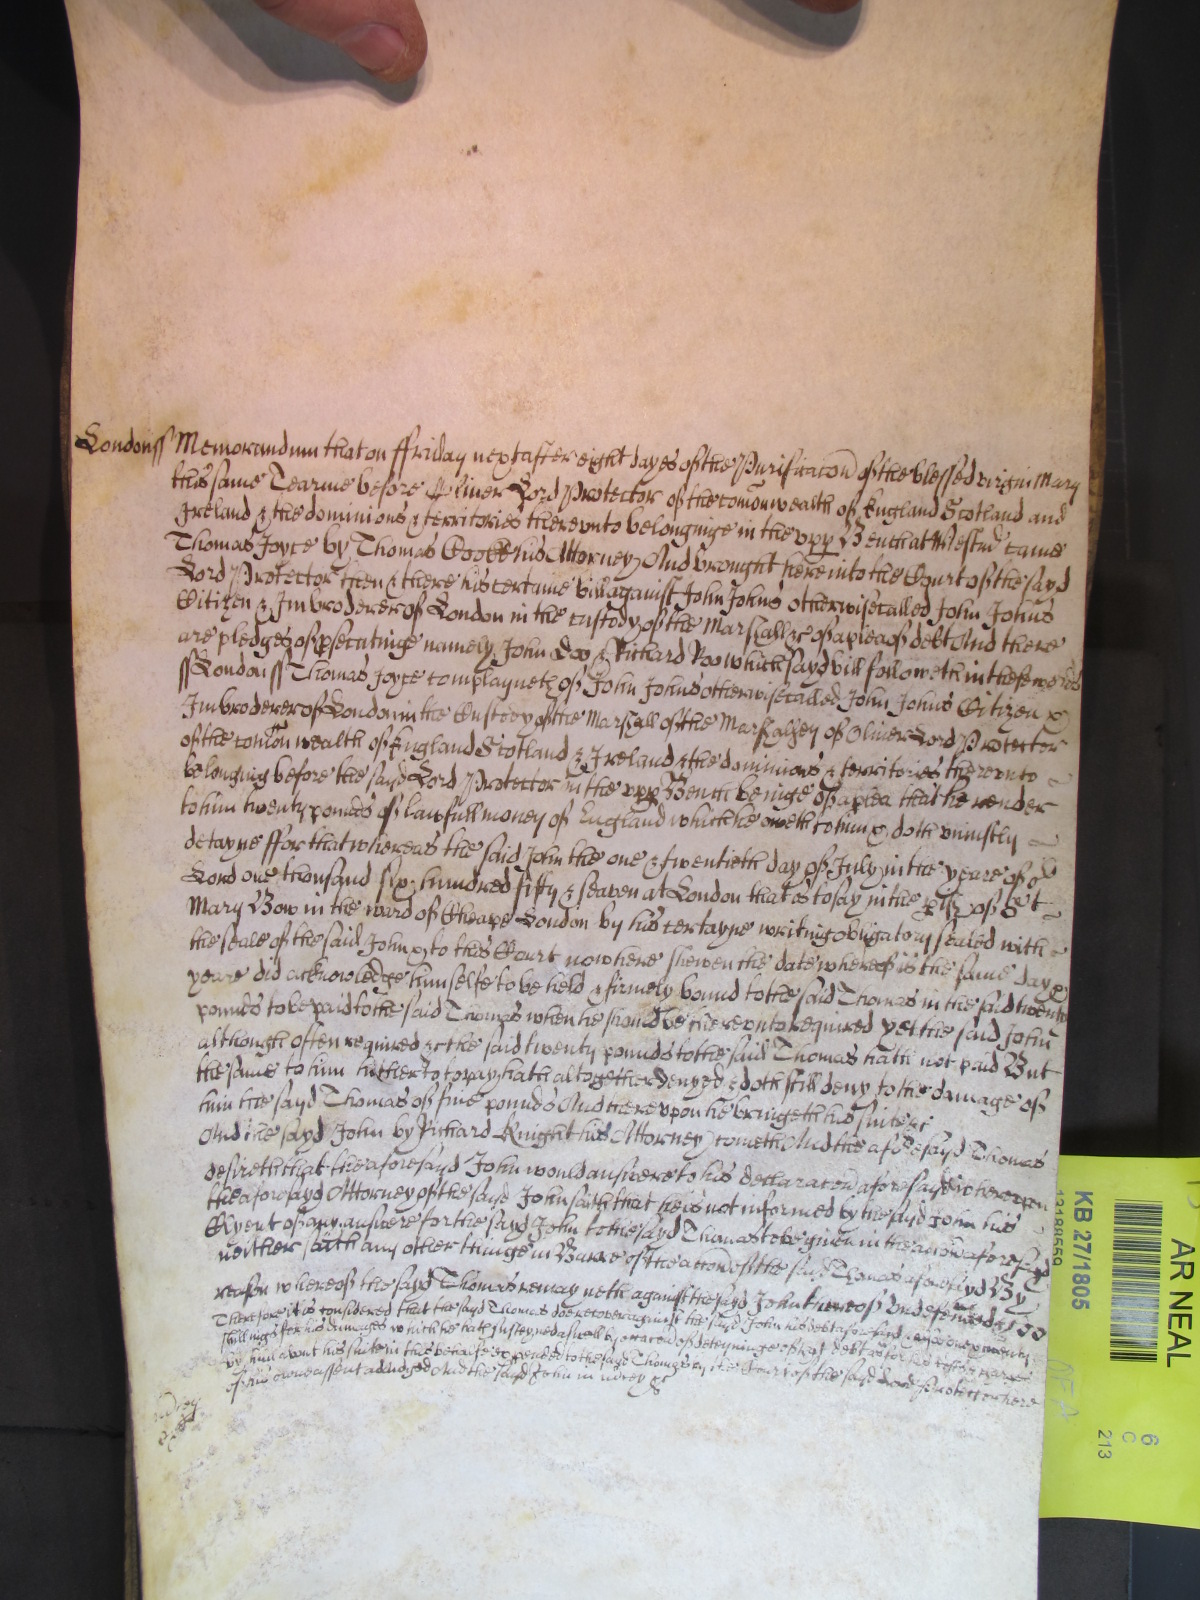 Londonss Memorandum that on ffriday next after eight dayes of the Purificacon of the blessed virgin Mary
this same Tearme before Oliver Lord Protector of the comonwealth of England Scotland and
Ireland & the dominions & territories thereunto belonginge in the upp Bench at Westmr came
Thomas Joyce by Thomas Cooke his Attorney And brought here into the Court of the sayd
Lord Protector then & there his certaine bill against John Johns otherwise called John Johns
Citizen & Imbroderer of London in the custody of the Marshall &c of a plea of debt And there
are pledges of psecutinge namely John Doo & Richard Roo which sayd bill followeth in these words
ss London ss Thomas Joyce complayneth of John Johns otherwise called John Johns Citizen &
Imbroderer of London in the Custody of the Marshall of the Marshalsey of Oliver Lord Protector
of the comon wealth of England Scotland & Ireland & the dominions & territories thereunto
belonging before the said Lord Protector in the upp Bench beinge of a plea that he render
to him twenty pounds of lawfull money of England which he oweth to him & doth uniustly
detayne ffor that whereas the said John the one & twentieth day of July in the yeare of or
Lord one thousand six hundred fifty & seaven at London that is to say in the pish of St
Mary Bow in the ward of Cheape London by his certayne writing obligatory sealed with
the seale of the said John & to this Court now here shewen the date whereof is the same day &
yeare did acknowledge himselfe to be held & firmely bound to the said Thomas in the said twenty
pounds to be paid to the said Thomas when he should be thereunto required yet the said John
although often required &c the said twenty pounds to the said Thomas hath not paid But
the same to him hitherto to pay hath altogether denyed & doth still deny to the damage of
him the sayd Thomas of five pounds And thereupon he bringeth his suite &c
And the sayd John by Richard Knight his Attorney cometh And the aforesayd Thomas
desireth that the aforesayd John would answere to his declaracon aforesaid whereupon
the aforesayd Attorney of the sayd John saith that he is not informed by the sayd John his
Clyent of any answere for the sayd John to the sayd Thomas to be given in the accon aforesayd
neither saith any other thinge in Barre of the accon of the said Thomas aforesayd By
reason whereof the sayd Thomas remayneth against the sayd John thereof undefended &c
Therefore it is considered that the sayd Thomas doe recover against the sayd John his debt aforesaid twenty
shillings for his damages which he hath susteyned aswell by occacon of deteyninge of that debt as for his costs
by him about his suite in this behalfe expended to the sayd Thomas by the Court of the sayd Lord Protector here
of his owne assent adiudged And the sayd John in mercy &c
mercy
AR NEAL
KB 27/1805
13188559
6
C
213